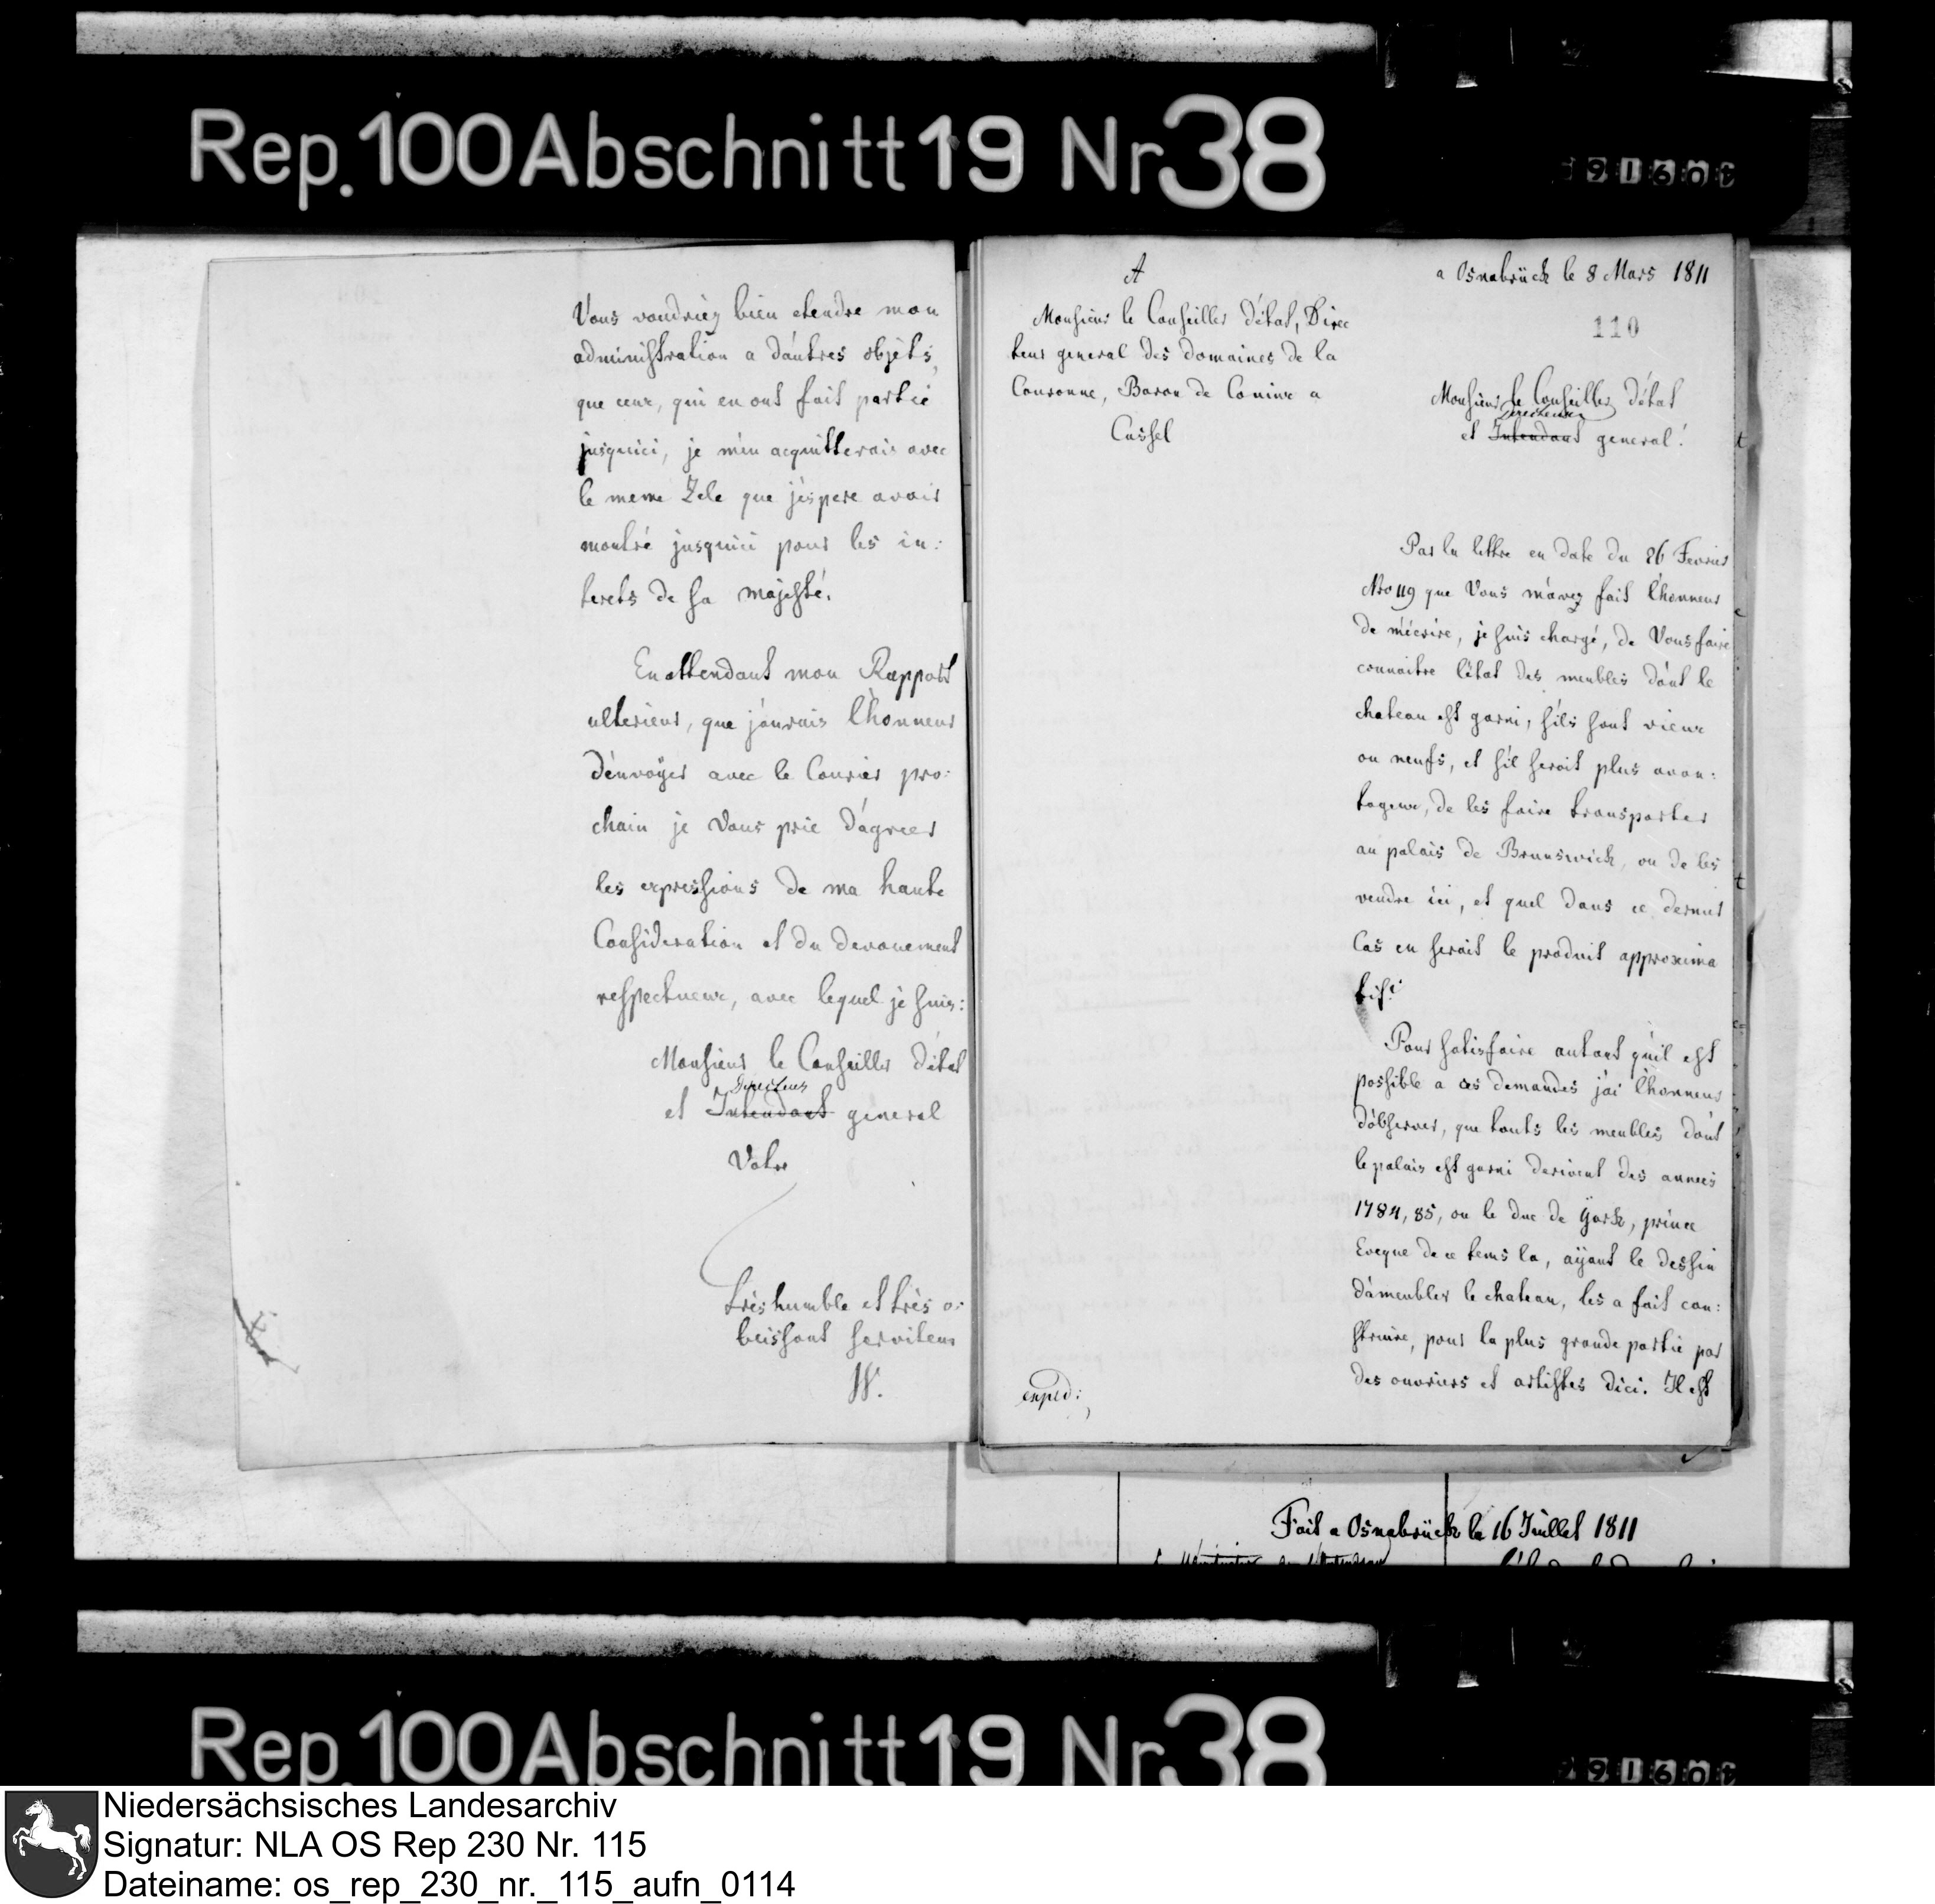 Rep. 100 Abschnitt 19 Nr 38
Vous voudriéz bien etendre mon
administration a d'autres objèts,
que ceux, qui en ont fait partie
jusquici, je m'en acquitterais avec
le meme Zele que j'espere avoir
montré jusquici pour les in:
terets de sa majesté.
En attendant mon Rapport
ulterieur, que j'aurais l'honneur
d'envoÿer avec le Courier pro:
chain je Vous prie d'agreer
les expressions de ma haute
Consideration et du devouement
respectueux, avec lequel je suis:
Monsieur le Conseiller d'état
Directeur
et Intendant géneral
Votre
très humble et très o:
beissant serviteur
W.
a Osnabrück le 8 Mars 1811
A
Monsieur le Conseiller d'état, Direc
teur general des domaines de la
Couronne, Baron de Coninx a
Cassel
110
Monsieur le Conseiller d'état
Directeur
et Intendant general!
Par la lettre en date du 26 Fevrier
Nro 119 que Vous m'avez fait l'honneur
de m'écrire, je suis chargé, de Vous faire
connaitre l'état des meubles dont le
chateau est garni, s'ils sont vieux
ou neufs, et s'il serait plus avan:
tageux, de les faire transporter
au palais de Brunswick, ou de les
vendre ici, et quel dans ce dernier
Cas en serait le produit approxima
tif?
Pour satisfaire autant qu'il est
possible a ces demandes j'ai l'honneur
d'observer, que touts les meubles dont
le palais est garni derivent des années
1784, 85, ou le duc de Yorck, prince
Eveque de ce tems la, aÿant le dessin
d'ameubler le chateau, les a fait con:
struire, pour la plus grande partie par
des ouvriers et artistes d'ici. Il est
exped:
Fait a Osnabrück le 16 Juillet 1811
Rep. 100 Abschnitt 19 Nr 38
Niedersächsisches Landesarchiv
Signatur: NLA OS Rep 230 Nr. 115
Dateiname: os_rep_230_nr._115_aufn_0114